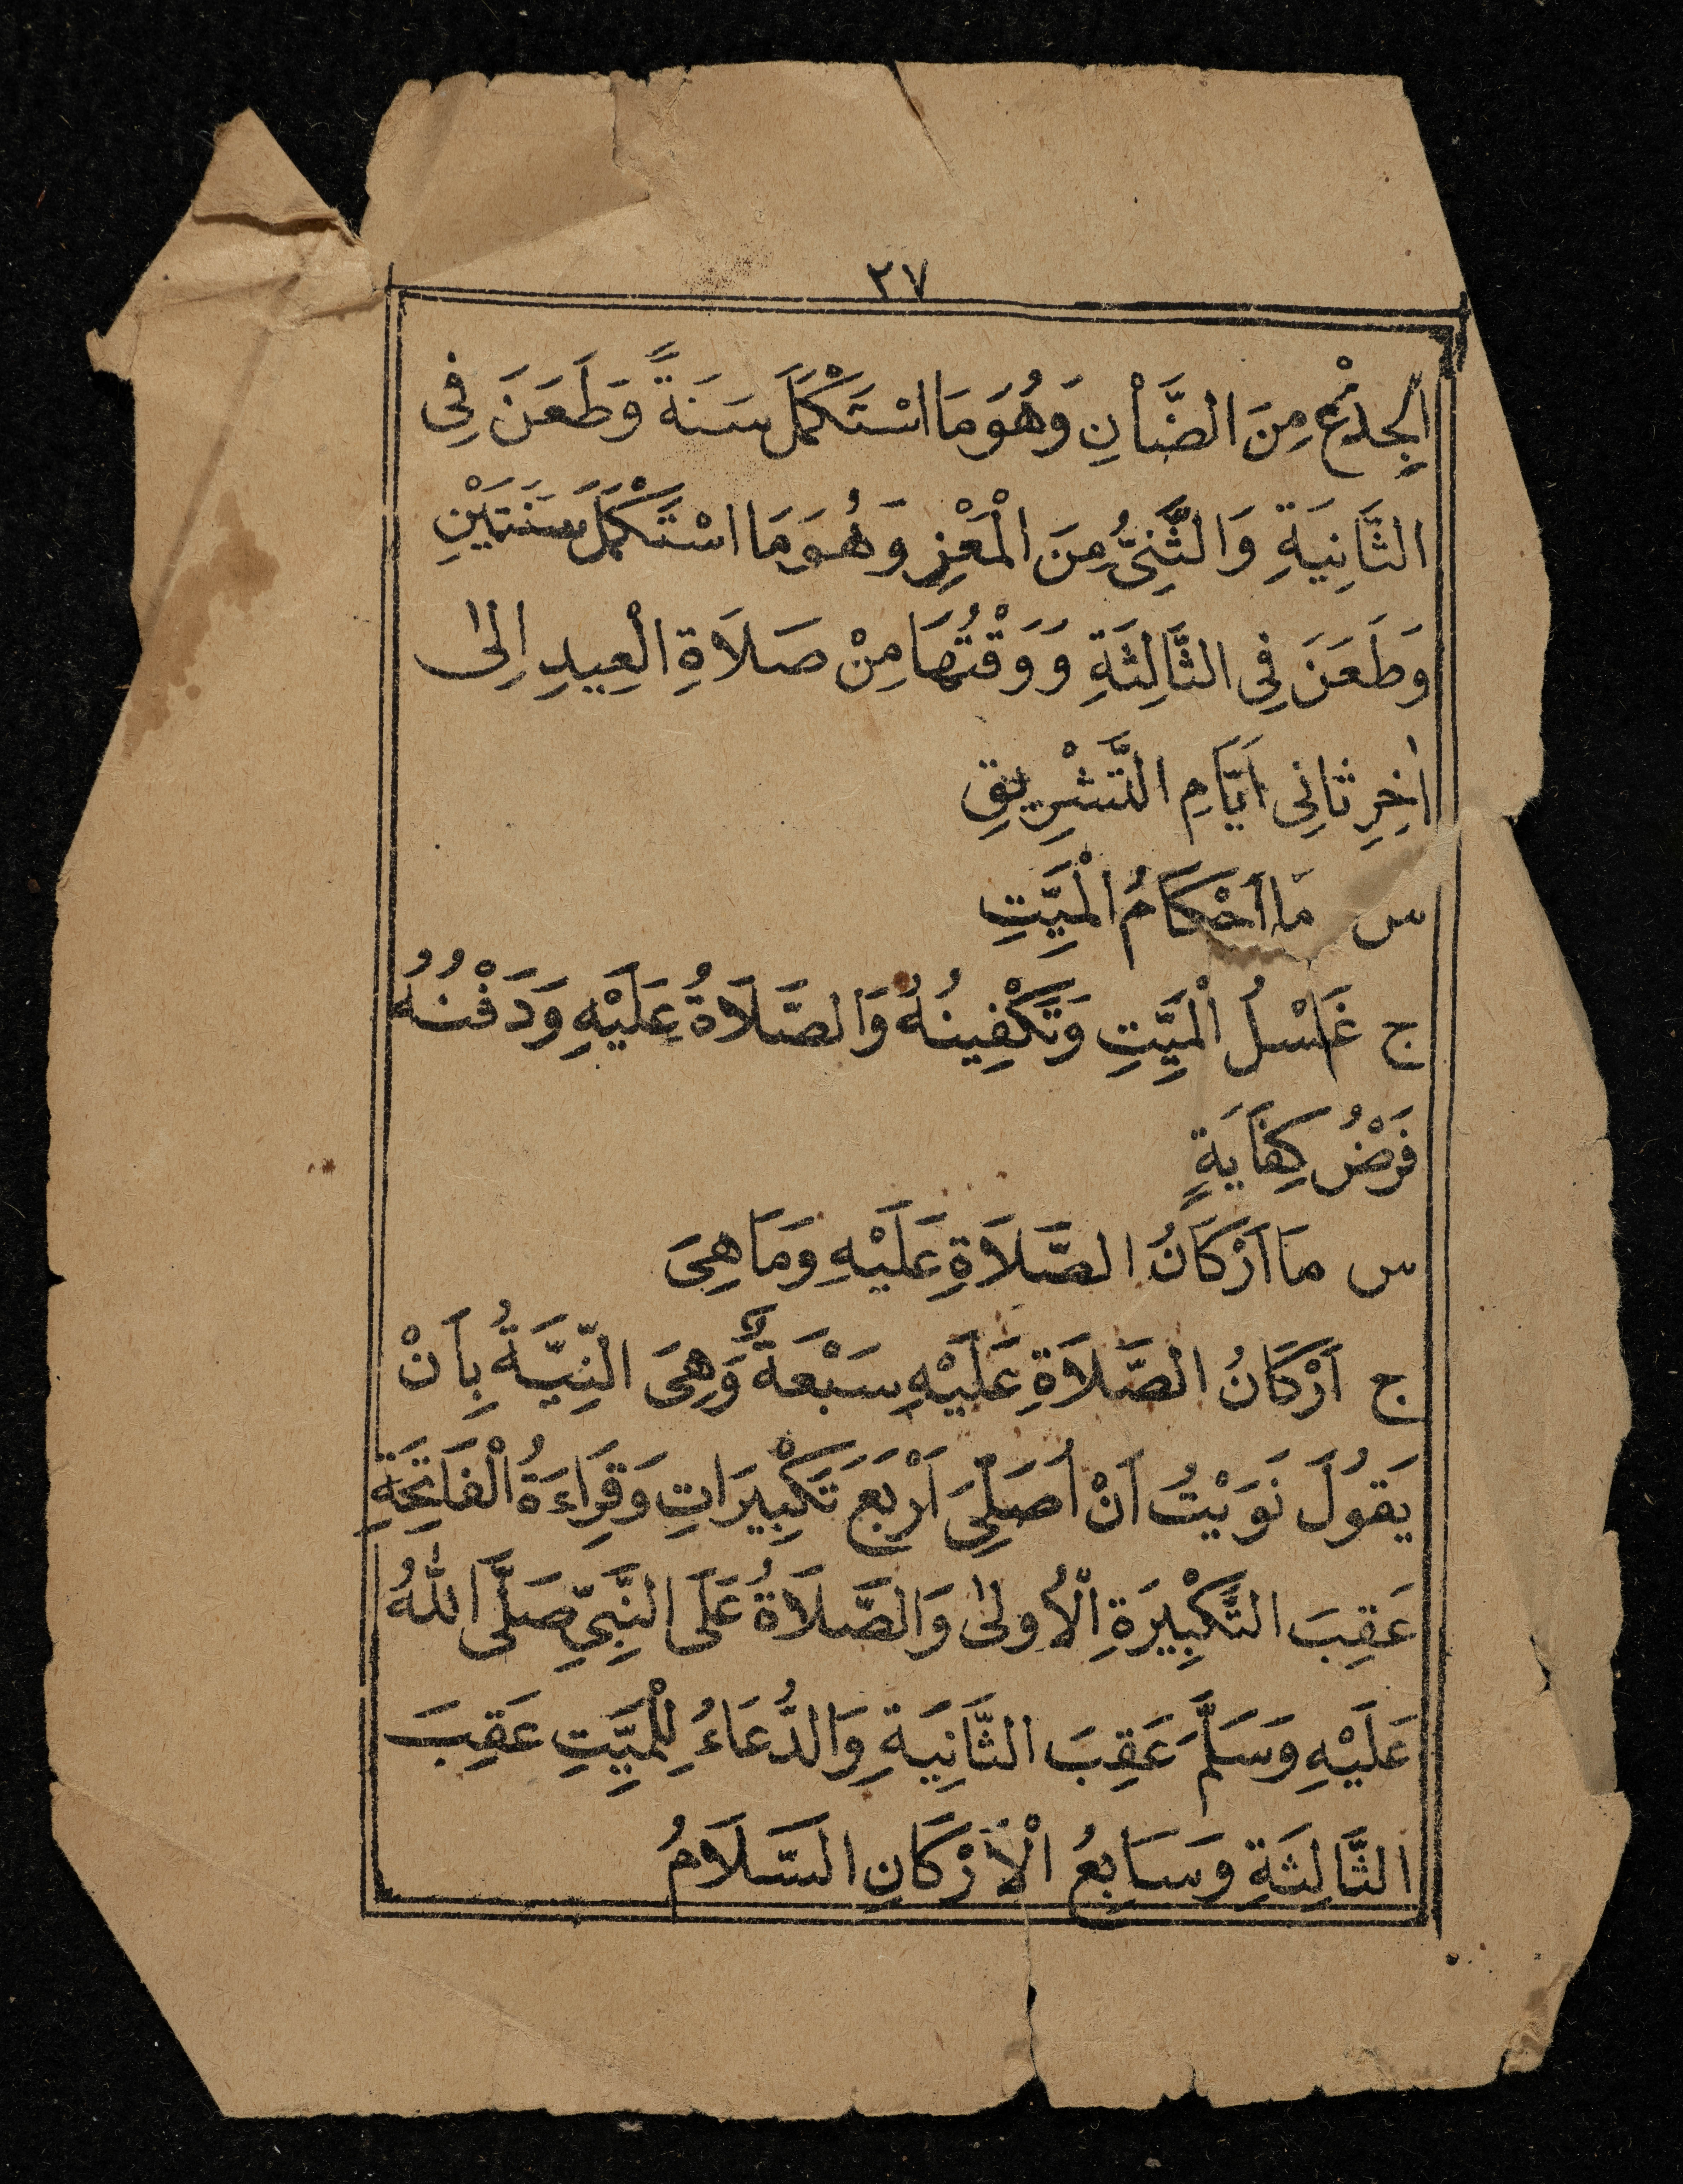 ٢٧
الْجِذْعُ مِنَ الضَّأْنِ وَهُوَ مَا اسْتَكْمَلَ سَنَةً وَطَعَنَ فِى
الثَّانِيَةِ وَالثَّنِىُّ مِنَ الْمَعْزِ وَهُوَ مَا اسْتَكْمَلَ سَنَتَيْنِ
وَطَعَنَ فِى الثَّالِثَةِ وَوَقْتُهَا مِنْ صَلَاةِ الْعِيدِ اِلٰى
اٰخِرِ ثَانِى اَيَّامِ التَّشْرِيقِ
س مَا اَحْكَامُ الْمَيِّتِ
ج غَسْلُ الْمَيِّتِ وَتَكْفِينُهُ وَالصَّلَاةُ عَلَيْهِ وَدَفْنُهُ
فَرْضُ كِفَايَةٍ
س مَا اَرْكَانُ الصَّلَاةِ عَلَيْهِ وَمَا هِىَ
ج اَرْكَانُ الصَّلَاةِ عَلَيْهِ سَبْعَةٌ وَهِىَ النِّيَّةُ بِاَنْ
يَقُولَ نَوَيْتُ اَنْ اُصَلِّىَ اَرْبَعَ تَكْبِيرَاتِ وَقِرَاءَةُ الْفَاتِحَةِ
عَقِبَ التَّكْبِيرَةِ الْاُولٰى وَالصَّلَاةُ عَلَى النَّبِىِّ صَلَّى اللهُ
عَلَيْهِ وَسَلَّمَ عَقِبَ الثَّانِيَةِ وَالدُّعَاءُ لِلْمَيِّتِ عَقِبَ
الثَّالِثَةِ وَسَابِعُ الْاَرْكَانِ السَّلَامُ